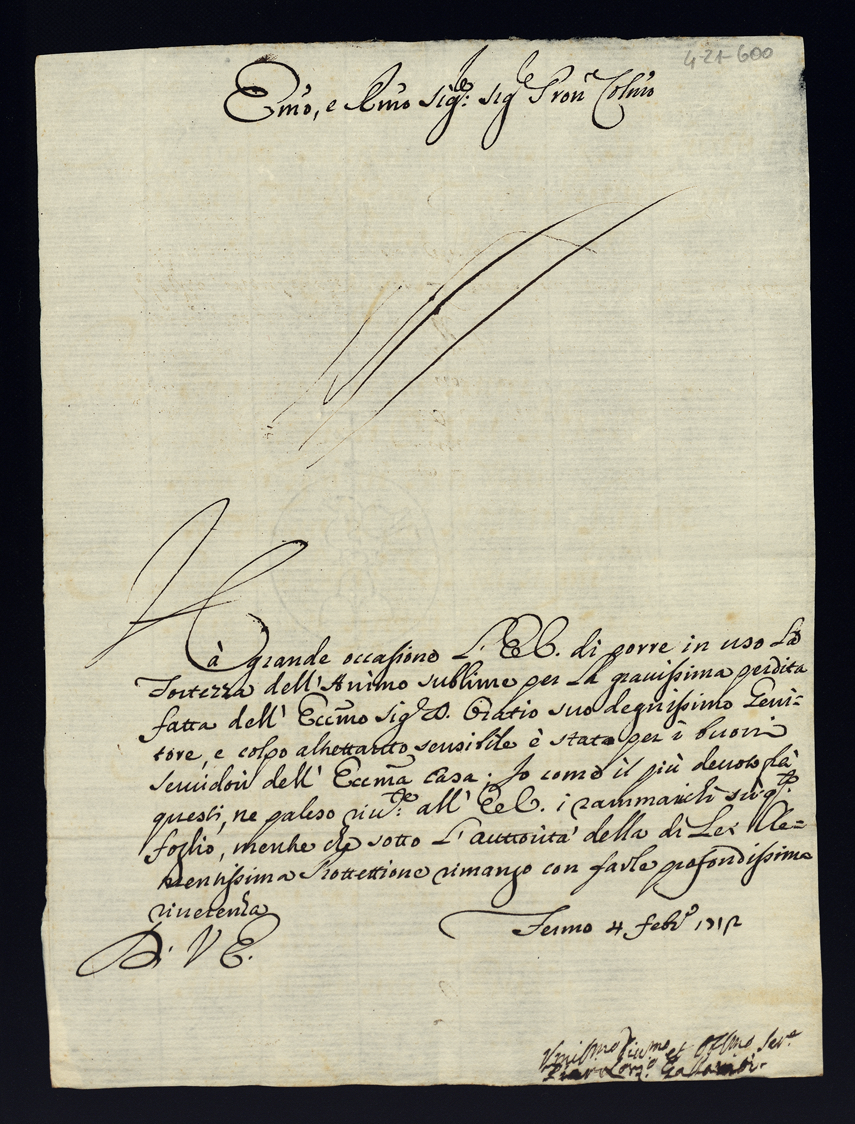 4-21-600
Emo, e Rmo Sigre: Sig Pron Colmo
Hà grande occasione L' E V. di porre in uso La
Fortezza dell' Animo sublime per La gravissima perdita
fatta dell' Eccmo Sig D. Oratio suo degnissimo Geni=
tore, e colpo altrettanto sensibile è stato per i buoni
Servidori dell' Eccma Casa; Io come il più devoto frà
questi, ne paleso all' E V. i rammarichi sù qto
foglio, mentre che sotto L' auttorità della di Lei Cle=
mentissima Prottettione rimango con farle profondissima
riverenza
Di V E.
Fermo 4 Febro
Umilmo et Serre